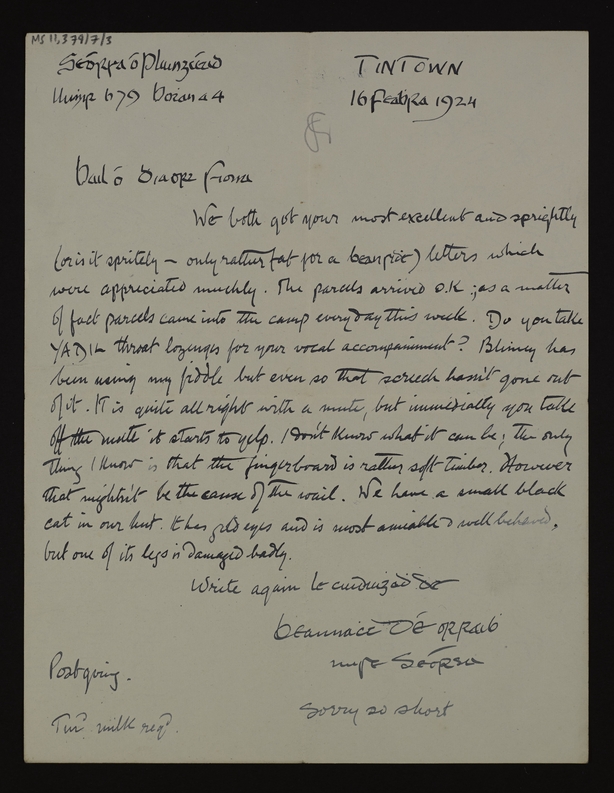 MS 11,379/7/3
Seórsa ó Pluingcéad
TINTOWN
Uimir 679 Botán a 4
16 Feabra 1924
Bail ó Dia ort Fiona
We both got your most excellent and sprightly
(or is it spritely – only rather fat for a bean ) letters which
were appreciated muchly. The parcels arrived O.K.; as a matter
of fact parcels came into the camp everyday this week. Do you take
throat lozenges for your vocal accompaniment? Blimey has
been using my fiddle but even so that screech hasn't gone out
of it. It is quite all right with a mute, but immediatly you take
off the mute it starts to yelp. I don't know what it can be; the only
thing I know is that the fingerboard is rather soft timber. However
that mightn't be the cause of the wail. We have a small black
cat in our hut. It has gold eyes and is most amiable & well behaved,
but one of its legs is damaged badly.
Write again le
beannacht DÉ orraib
mise Seórsa
Post going.
sorry so short
milk reqd.